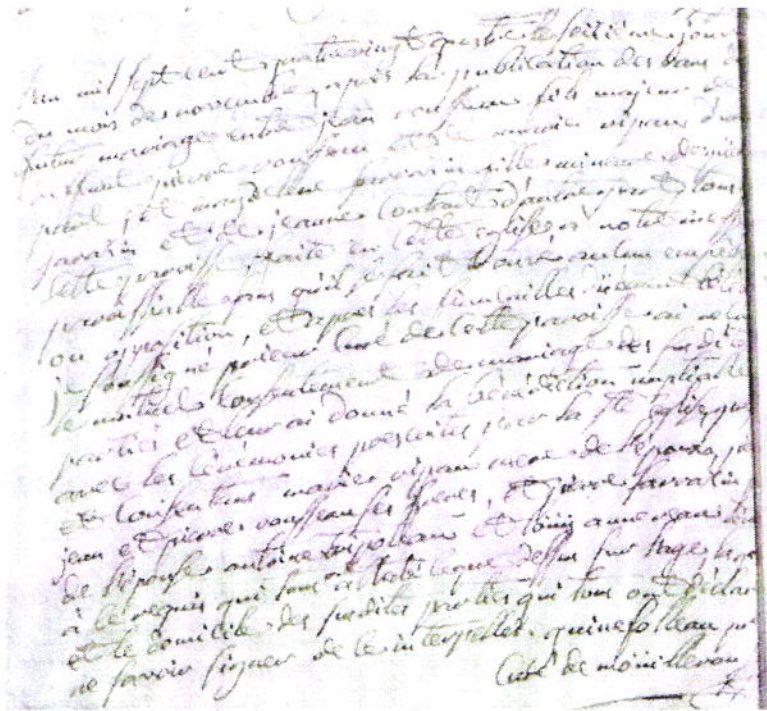 l'an mil sept cent quatre vingt quatre le seizième jour
du mois de novembre après la publication des bans d
futur mariage entre jean rousseau fils majeur de
pierre rousseau et de marie ripaud d'une
part, et magdeleine savarin fille mineure de
savarin et de jeanne d'autre part tous
cette paroisse faite en cette eglise a notre messe
paroissiale sans qu'il se soit trouvé aucun empes
ou opposition, et après les fiancailles duement
je soussigné prieur curé de cette paroisse ai recu
le mutuel consentement de mariage des susdites
parties et leur ai donné la bénédiction nuptiale
avec les cérémonies prescrites par la ste eglise
et consentans marie ripaud mere de l'epoux,
jean et pierre rousseau ses freres, et pierre savarin p
de l'epouse antoine et
à ce requis qui tous ont attesté ce que dessus sur l'age
et le domicile des susdites parties qui tous ont déclar
ne savoir signer de ce interpellés. quinefolleau
curé de mouilleron